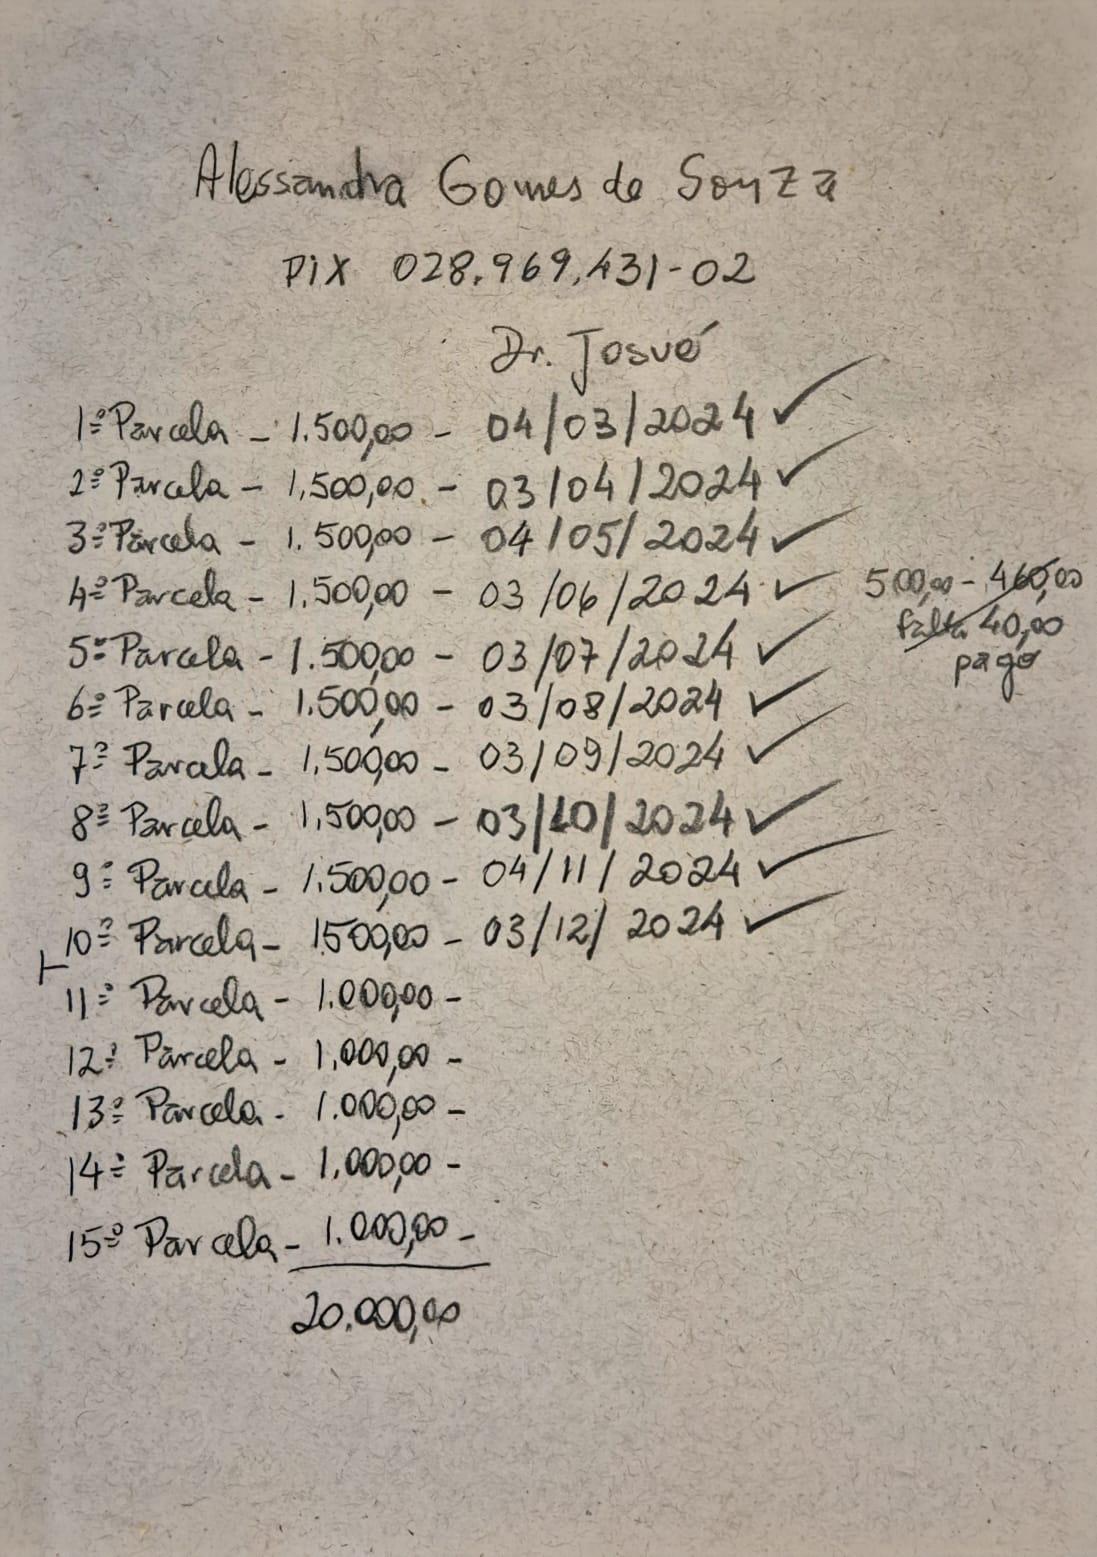 Alessandra Gomes de Souza
PIX 028.969.431-02
Dr. Josué
1ª Parcela - 1.500,00 - 04/03/2024 ✓
2ª Parcela - 1.500,00 - 03/04/2024 ✓
3ª Parcela - 1.500,00 - 04/05/2024 ✓
4ª Parcela - 1.500,00 - 03/06/2024 ✓ 500,00 - 460,00
falta 40,00
pago
5ª Parcela - 1.500,00 - 03/07/2024 ✓
6ª Parcela - 1.500,00 - 03/08/2024 ✓
7ª Parcela - 1.500,00 - 03/09/2024 ✓
8ª Parcela - 1.500,00 - 03/10/2024 ✓
9ª Parcela - 1.500,00 - 04/11/2024 ✓
10ª Parcela - 1500,00 - 03/12/2024 ✓
11ª Parcela - 1.000,00 -
12ª Parcela - 1.000,00 -
13ª Parcela - 1.000,00 -
14ª Parcela - 1.000,00 -
15ª Parcela - 1.000,00 -
20.000,00